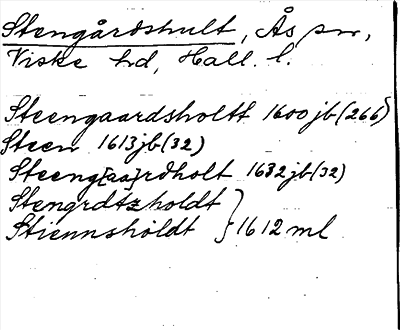 Stengårdshult, Ås sn,
Viske hd, Hall. l.
Steengaardsholtt 1600 jb (266)
Steen 1613 jb (32)
Steeng[aa]rdholt 1632 jb (32)
Stengrdtzholdt
Stiennsholdt } 1612 ml